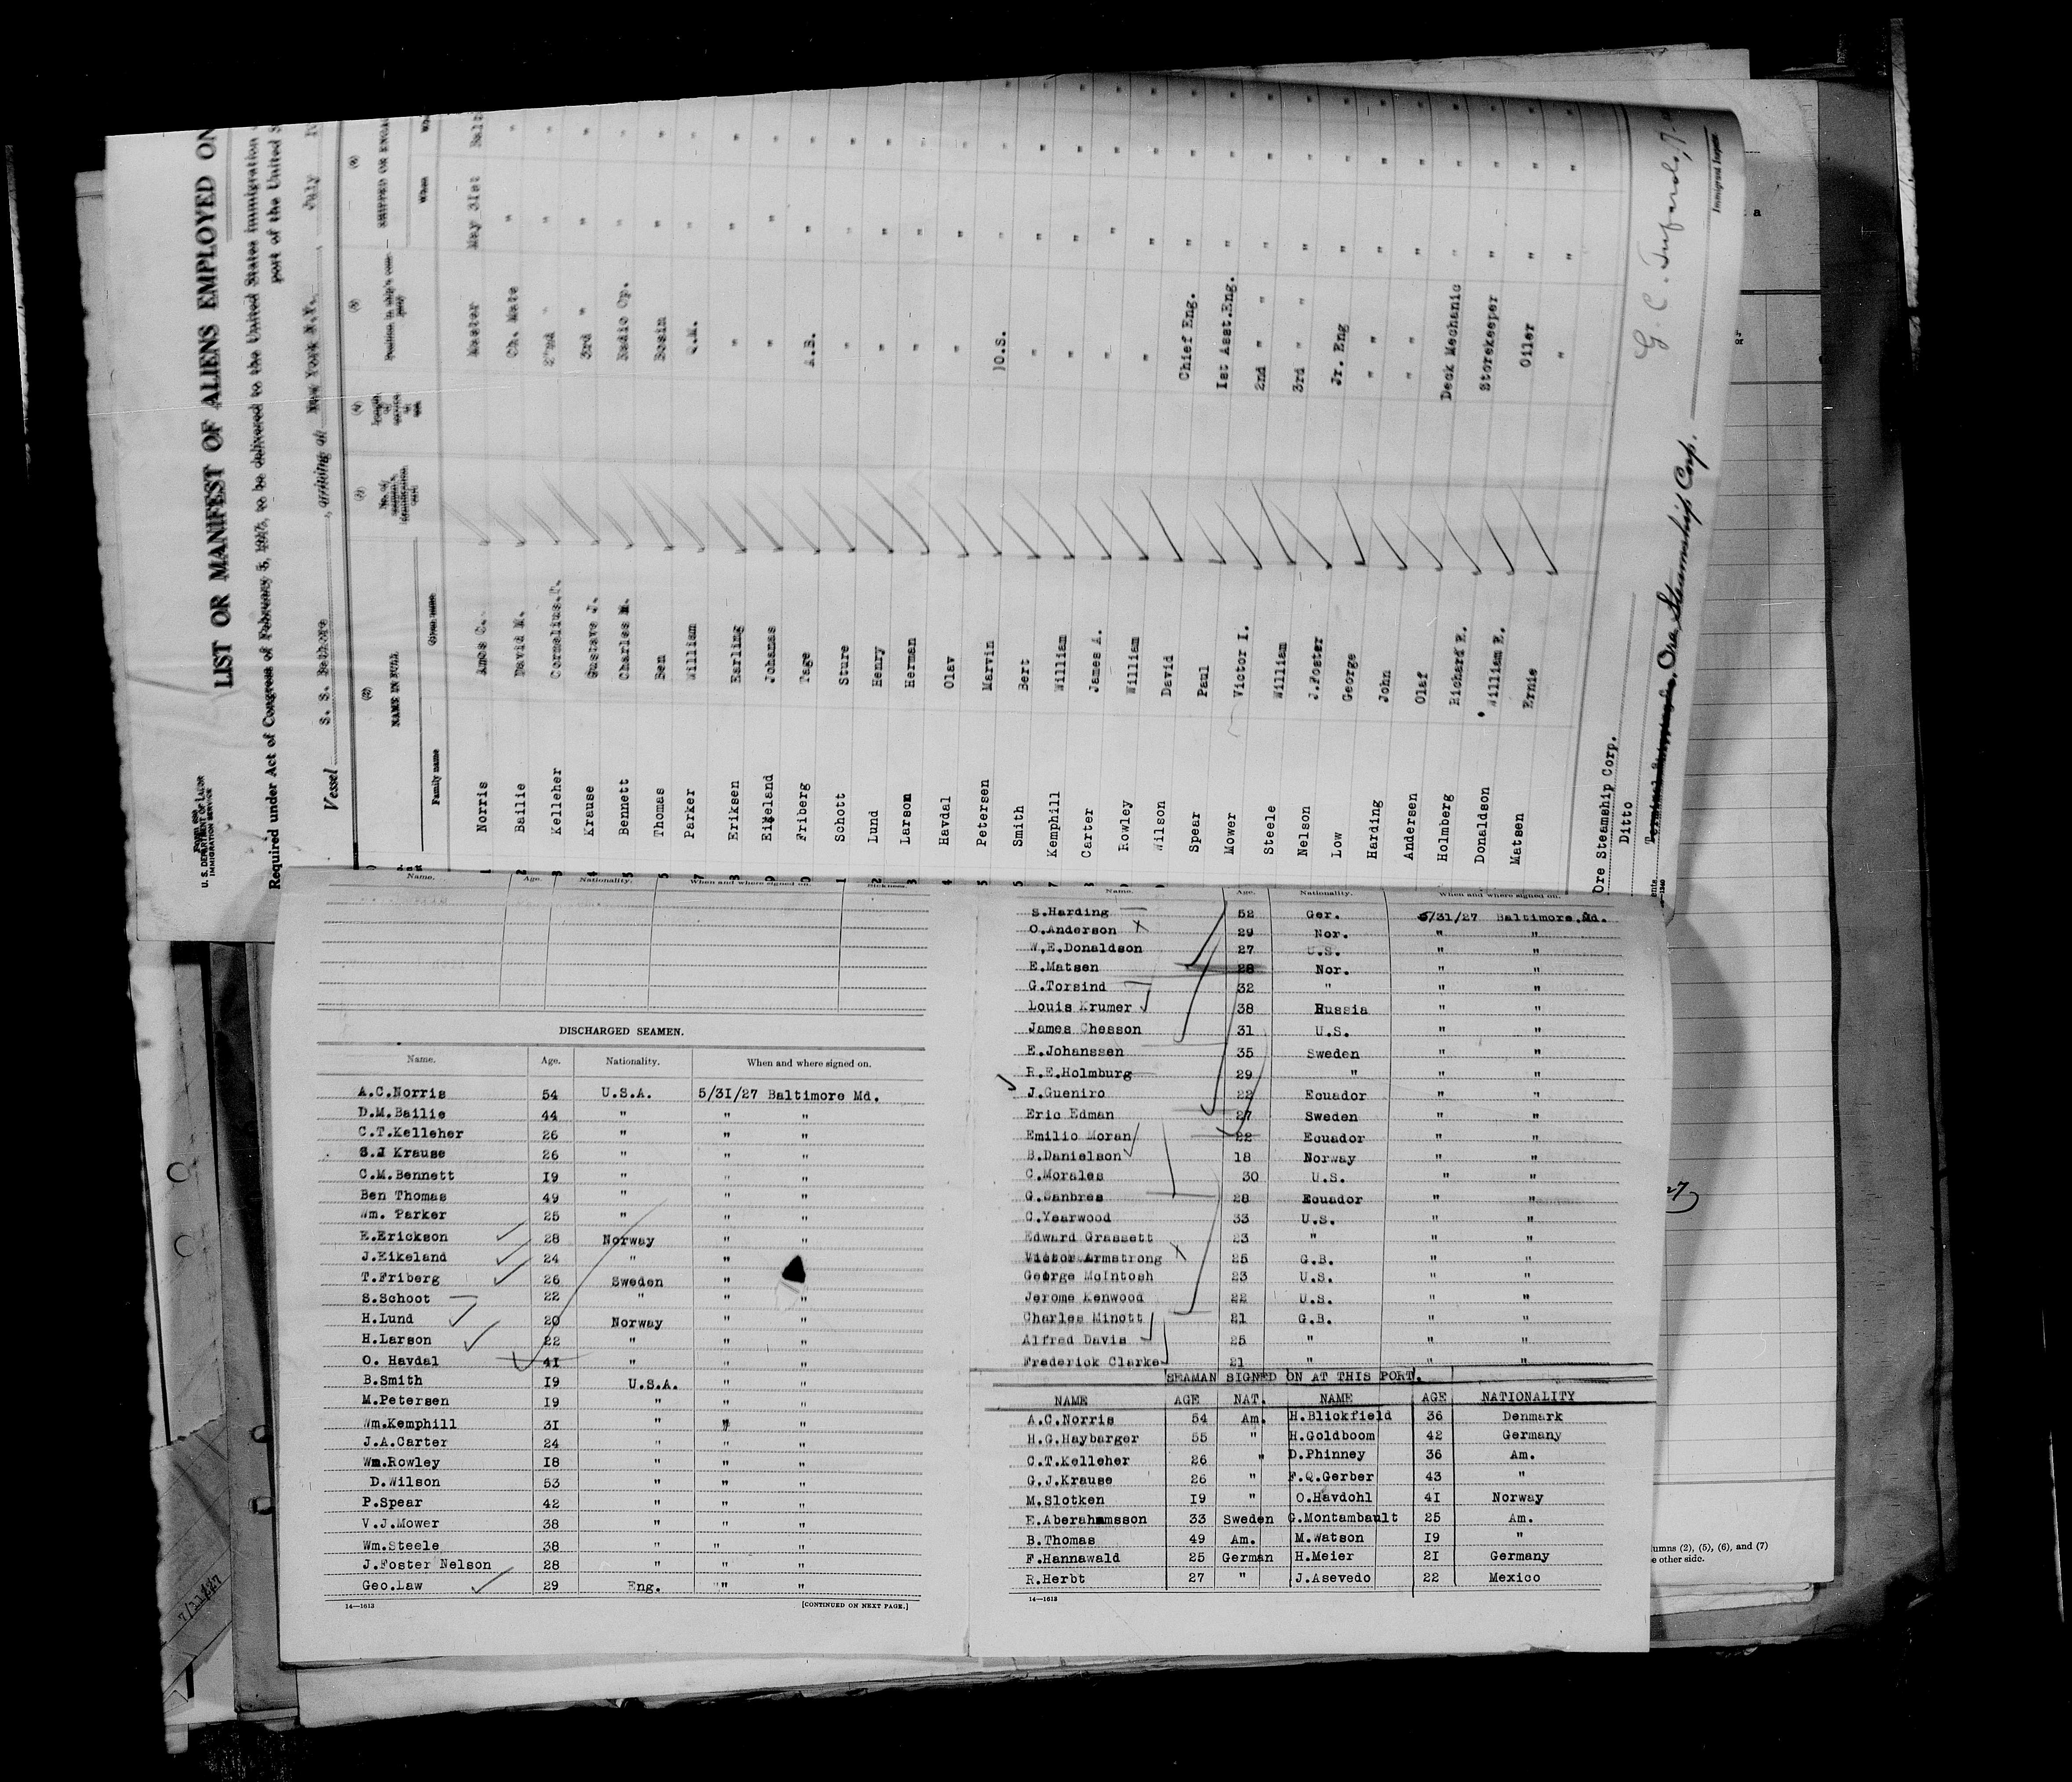 Form 689
U. S. DEPARTMENT OF LABOR
IMMIGRATION SERVICE
LIST OR MANIFEST OF ALIENS EMPLOYED ON
Required under Act of Congress of February 5, 1917, to be delivered to the United States immigration
port of the United S
Vessel S. S. Bethore, arriving at New York N.Y., July
(2) (3) (4) (5) (6)
NAME IN FULL No. of Length of service at sea Position in ship's company SHIPPED OR ENGA
Family name Given name When Whe
Norris Amos C. Master May 31st Balt
Bailie David M. Ch. Mate " "
Kelleher Cornelius.T. 2nd " " "
Krause Gustave J. 3rd " " "
Bennett Charles M. Radio Op. " "
Thomas Ben Bosin " "
Parker William Q.M. " "
Eriksen Earling " " "
Eikeland Johannas " " "
Friberg Tage A.B. " "
Schott Sture " " "
Lund Henry " " "
Larson Herman " " "
Havdal Olav " " "
Petersen Marvin O.S. " "
Smith Bert " " "
Kemphill William " " "
Carter James A. " " "
Rowley William " " "
Wilson David
Spear Paul Chief Eng. " "
Mower Victor I. 1st Asst.Eng. " "
Steele William 2nd " " " "
Nelson J.Foster 3rd " " " "
Low George Jr. Eng " "
Harding John " " " "
Andersen Olaf " " " "
Holmberg Richard E. Deck Mechanic " "
Donaldson William E. Storekeeper " "
Matsen Ernie Oiler " "
Ore Steamship Corp.
Ditto
Ore Steamship Corp.
Immigrant Inspector
Name. Age. Nationality. When and where signed on. Sickness.
DISCHARGED SEAMEN.
Name. Age. Nationality. When and where signed on.
A.C.Norris 54 U.S.A. 5/31/27 Baltimore Md.
D.M.Bailie 44 " " "
C.T.Kelleher 26 " " "
S.J Krause 26 " " "
C.M.Bennett 19 " " "
Ben Thomas 49 " " "
Wm. Parker 25 " " "
E.Erickson 28 Norway " "
J.Eikeland 24 " "
T.Friberg 26 Sweden "
S.Schoot 22 " " "
H.Lund 20 Norway " "
H.Larson 22 " " "
O. Havdal 41 " " "
B.Smith 19 U.S.A. " "
M.Petersen 19 " " "
Wm.Kemphill 31 " " "
J.A.Carter 24 " " "
Wm.Rowley 18 " " "
D.Wilson 53 " " "
P.Spear 42 " " "
V.J.Mower 38 " " "
Wm.Steele 38 " " "
J.Foster Nelson 28 " " "
Geo.Law 29 Eng. " "
14—1613 [CONTINUED ON NEXT PAGE.]
Name. Age. Nationality. When and where signed on.
S.Harding 52 Ger. 5/31/27 Baltimore,Md.
O.Anderson 29 Nor. " "
W.E.Donaldson 27 U.S. " "
E.Matsen 28 Nor. " "
G.Torsind 32 " " "
Louis Krumer 38 Russia " "
James Chesson 31 U.S. " "
E.Johanssen 35 Sweden " "
R.E.Holmburg 29 " " "
J.Gueniro 22 Ecuador " "
Eric Edman 27 Sweden " "
Emilio Moran 22 Ecuador " "
B.Danielson 18 Norway " "
C.Morales 30 U.S. " "
G.Sanbres 28 Ecuador " "
C.Yearwood 33 U.S. " "
Edward Grassett 23 " " "
Victor Armstrong 25 G.B. " "
George McIntosh 23 U.S. " "
Jerome Kenwood 22 U.S. " "
Charles Minott 21 G.B. " "
Alfred Davis 25 " " "
Frederick Clarke 21 " " "
SEAMAN SIGNED ON AT THIS PORT.
NAME AGE NAT. NAME AGE NATIONALITY
A.C.Norris 54 Am. H.Blickfield 36 Denmark
H.G.Haybarger 55 " H.Goldboom 42 Germany
C.T.Kelleher 26 " D.Phinney 36 Am.
G.J.Krause 26 " F.Q.Gerber 43 "
M.Slotken 19 " O.Havdohl 41 Norway
E.Aberahamsson 33 Sweden G.Montambault 25 Am.
B.Thomas 49 Am. M.Watson 19 "
F.Hannawald 25 German H.Meier 21 Germany
R.Herbt 27 " J.Asevedo 22 Mexico
14—1613
umns (2), (5), (6), and (7)
e other side.